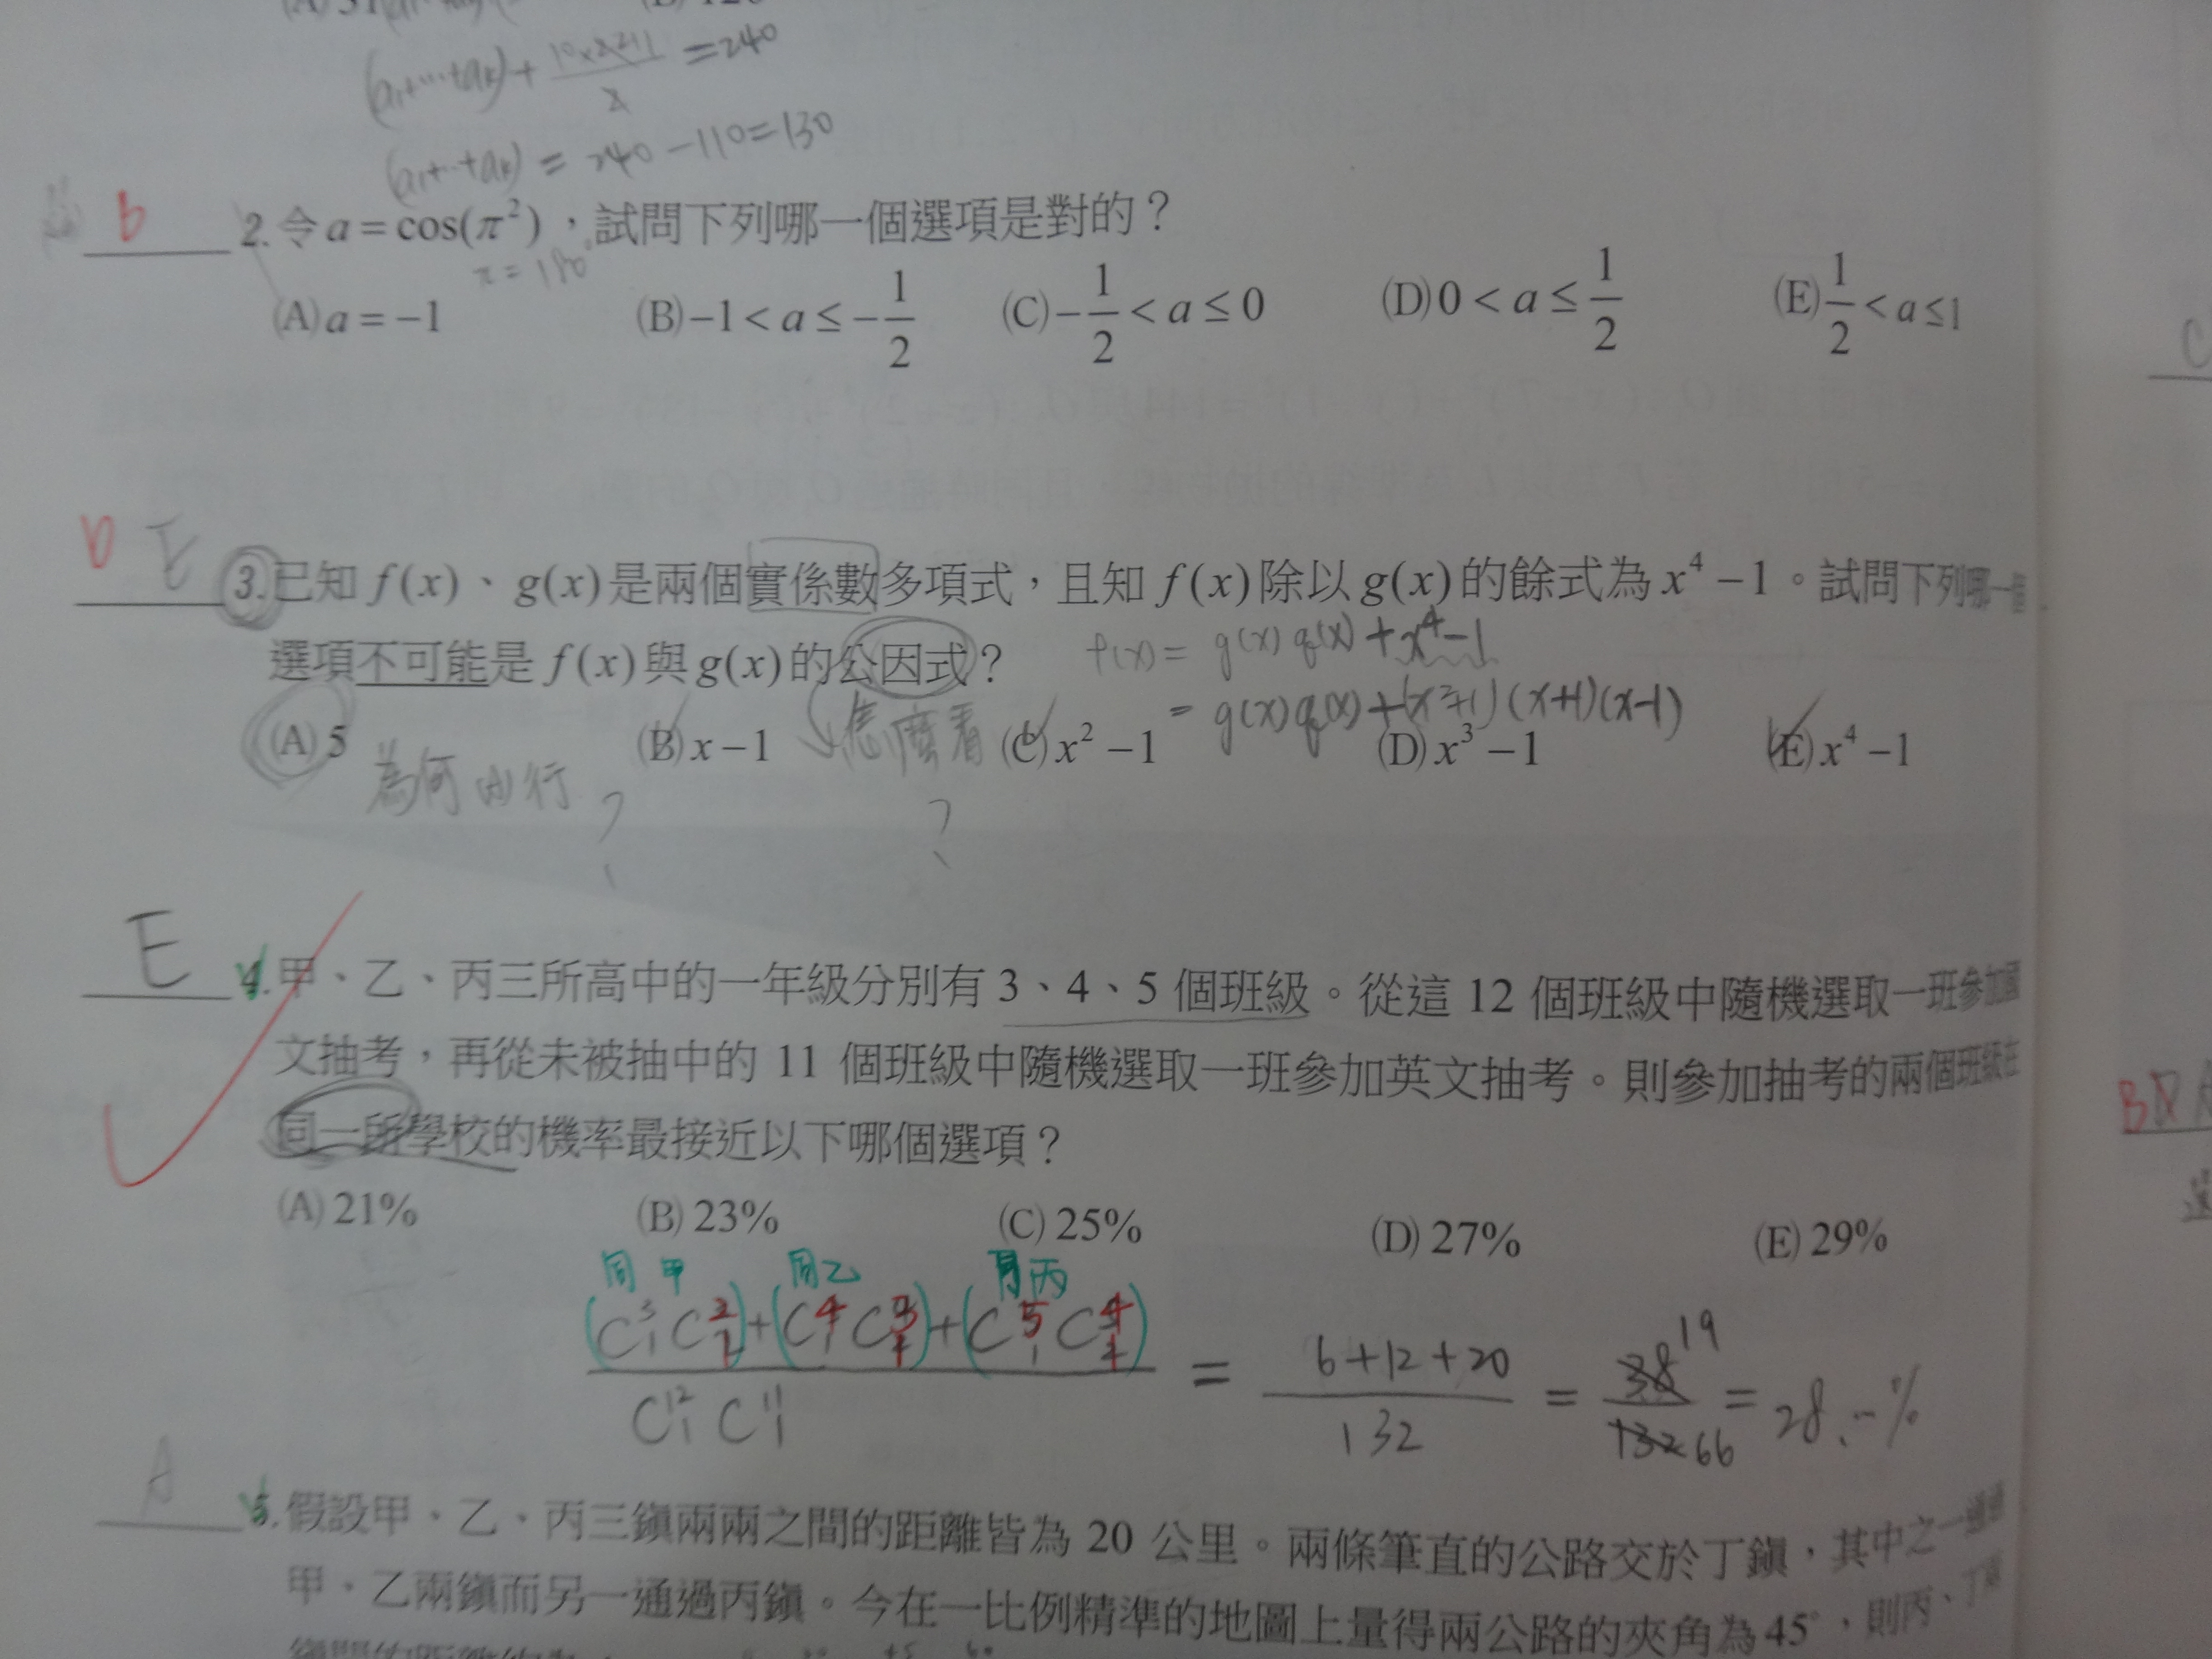 (a₁+⋯+aₖ) + 10×22/2 = 240
(a₁+⋯+aₖ) = 240 - 110 = 130
b 2. 令 a = cos(π²)，試問下列哪一個選項是對的？
π = 180°
(A) a = -1 (B) -1 < a ≤ -1/2 (C) -1/2 < a ≤ 0 (D) 0 < a ≤ 1/2 (E) 1/2 < a ≤ 1
D E 3. 已知 f(x)、g(x) 是兩個實係數多項式，且知 f(x) 除以 g(x) 的餘式為 x⁴ - 1。試問下列哪一個
選項不可能是 f(x) 與 g(x) 的公因式？ f(x) = g(x) q(x) + x⁴ - 1
= g(x) q(x) + (x²+1)(x+1)(x-1)
(A) 5 (B) x - 1 怎麼看 (C) x² - 1 (D) x³ - 1 (E) x⁴ - 1
為何 行 ? ?
E 4. 甲、乙、丙三所高中的一年級分別有 3、4、5 個班級。從這 12 個班級中隨機選取一班參加國
文抽考，再從未被抽中的 11 個班級中隨機選取一班參加英文抽考。則參加抽考的兩個班級在
同一所學校的機率最接近以下哪個選項？
(A) 21% (B) 23% (C) 25% (D) 27% (E) 29%
同甲 同乙 同丙
(C³₁ C²₁) + (C⁴₁ C³₁) + (C⁵₁ C⁴₁) / C¹²₁ C¹¹₁ = 6+12+20 / 132 = 38 19 / 132 66 = 28.⋯%
A 5. 假設甲、乙、丙三鎮兩兩之間的距離皆為 20 公里。兩條筆直的公路交於丁鎮，其中之一通過
甲、乙兩鎮而另一通過丙鎮。今在一比例精準的地圖上量得兩公路的夾角為 45°，則丙、丁
C
B